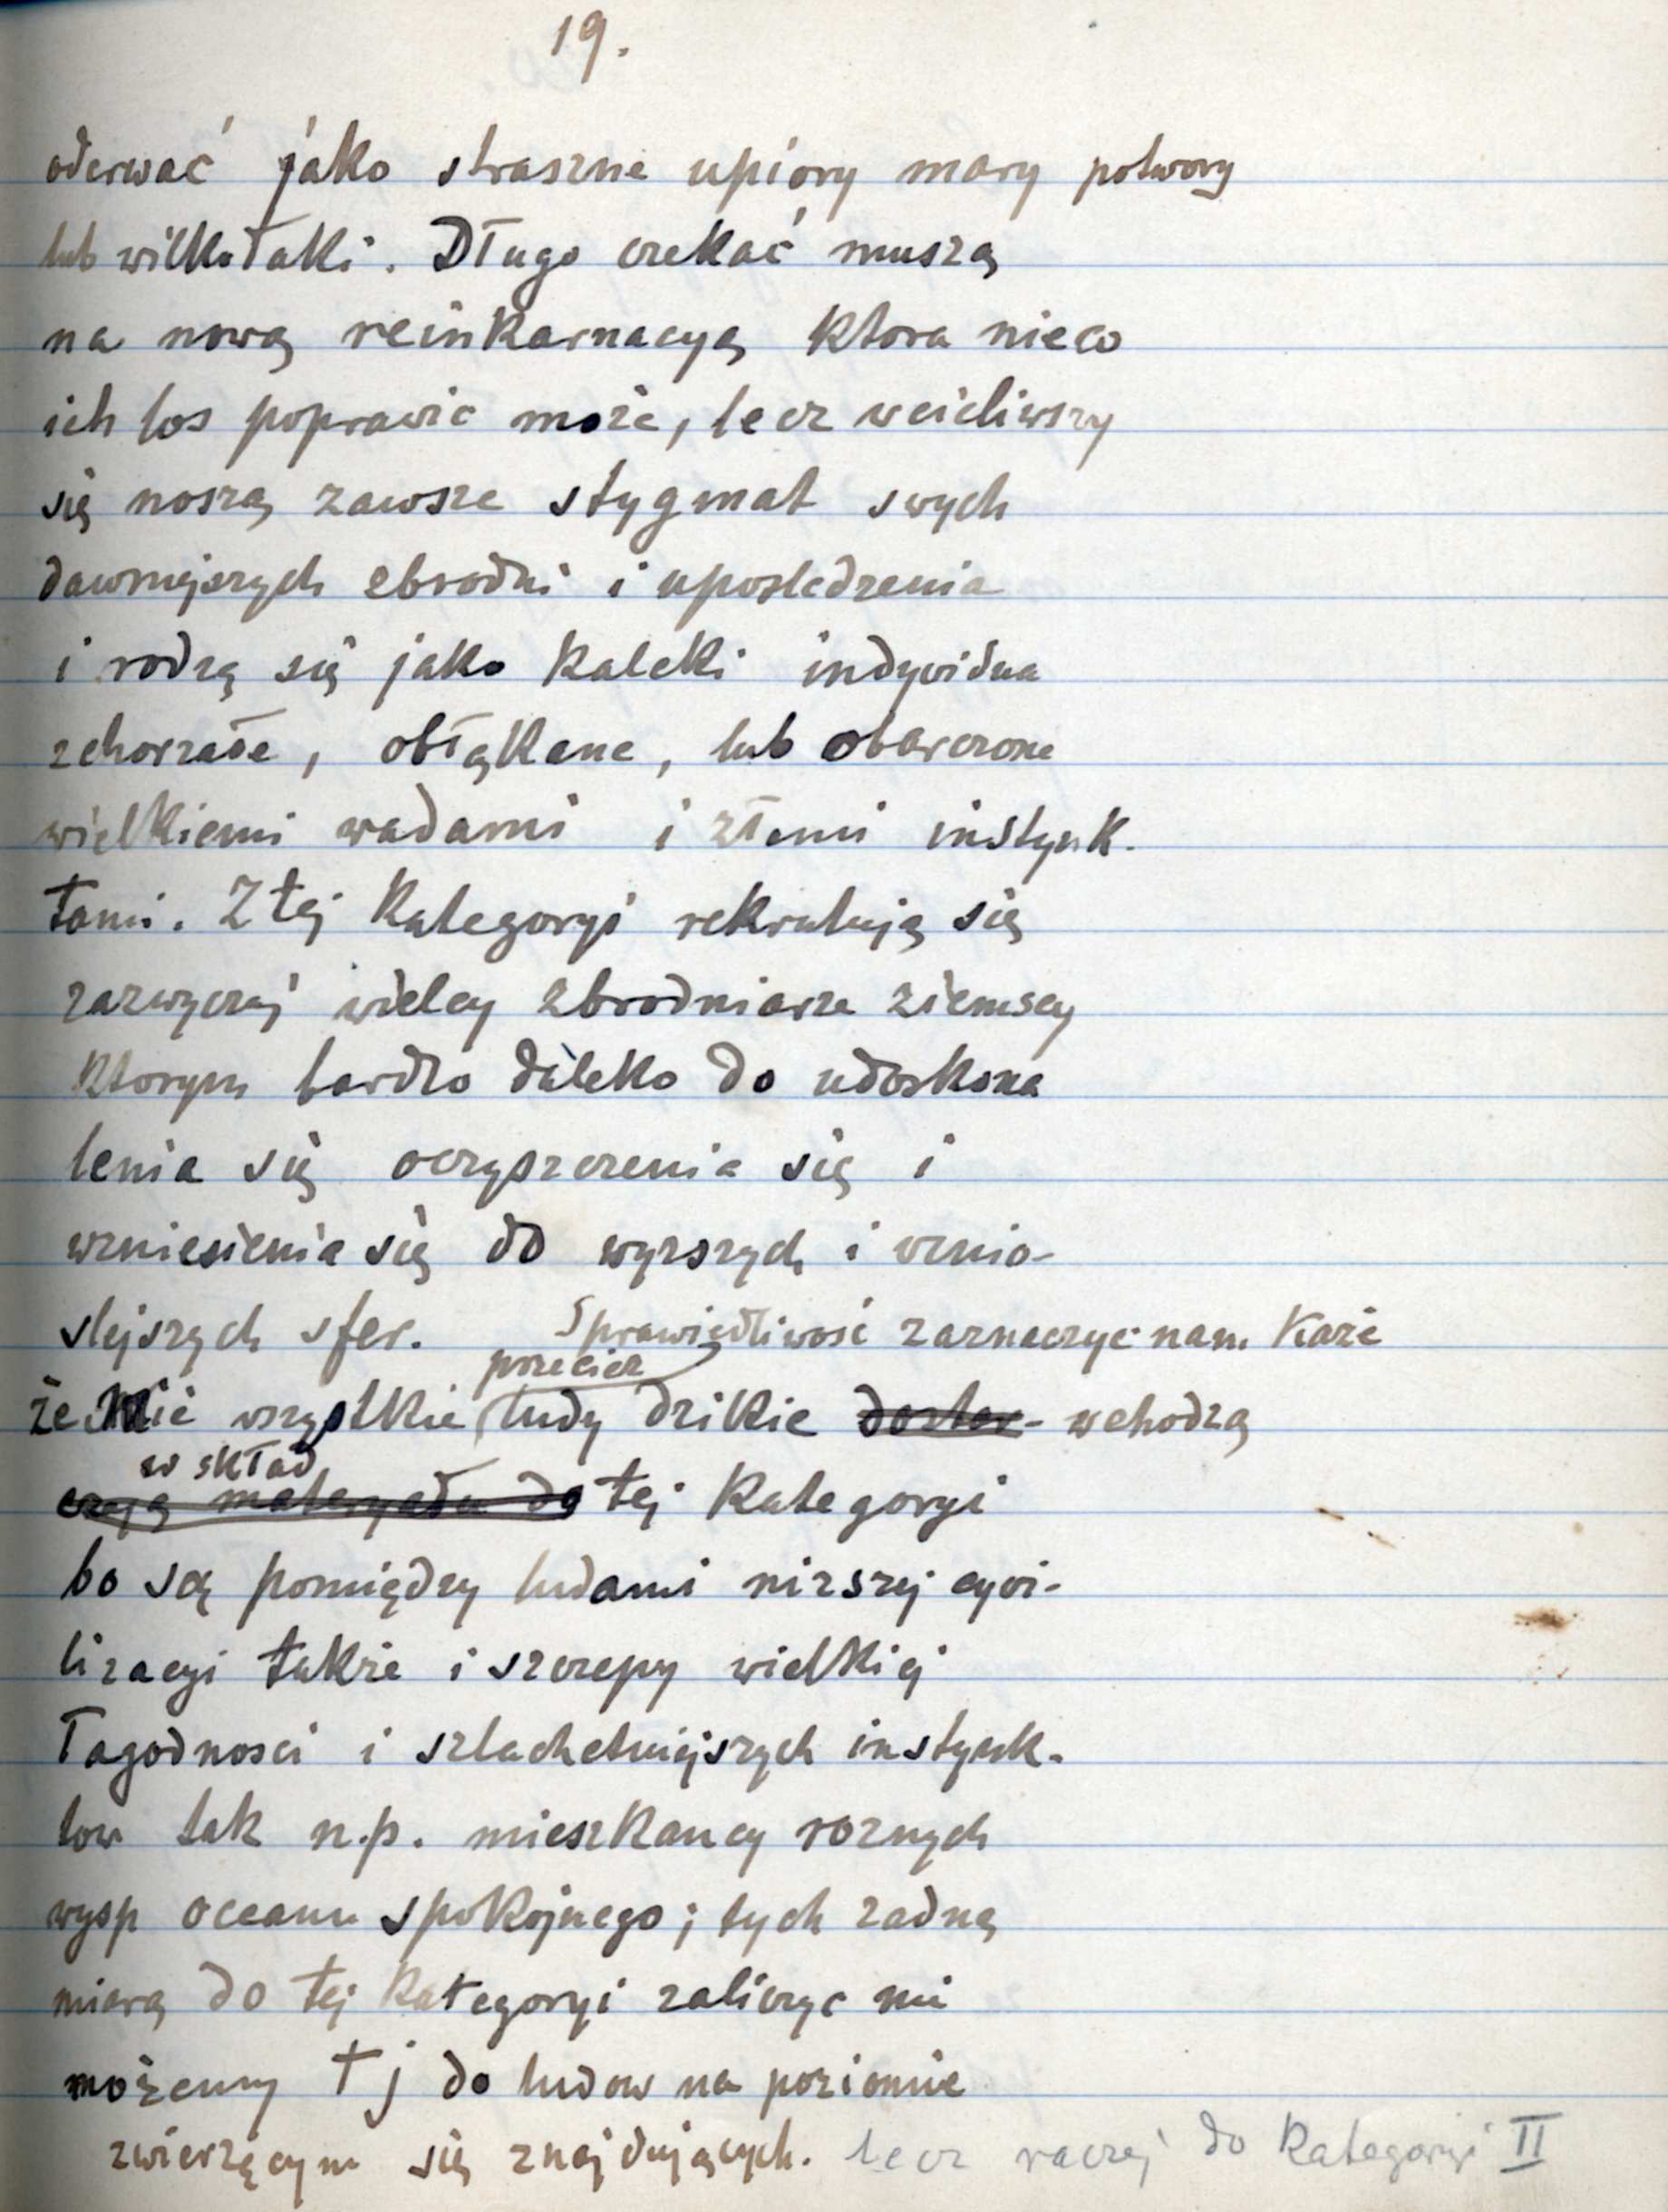 19.
oderwać jako straszne upiory mary potwory
lub wilkołaki. Długo czekać muszą
na nową reinkarnacyą ktora nieco
ich los poprawic może, lecz wcieliwszy
się noszą zawsze stygmat swych
dawniejszych zbrodni i uposledzenia
i rodzą się jako kaleki indywidua
zchorzałe, obłąkane, lub obarczone
wielkiemi wadami i złemi instynk-
tami. Z tej kategoryi rekrutują się
zazwyczaj wielcy zbrodniarze ziemscy
ktorym bardzo daleko do udoskona
lenia się oczyszczenia się i
wzniesienia się do wyzszych i wznio-
slejszych sfer. Sprawiedliwość zaznaczyc nam każe
przeciez
że nie wszystkie ludy dzikie dostar- wchodzą
w skład
czają materyału do tej kategoryi
bo są pomiędzy ludami nizszej cywi-
lizacyi takze i szczepy wielkiej
łagodnosci i szlachetniejszych instynk-
tow tak n.p. mieszkancy roznych
wysp oceanu spokojnego; tych zadną
miarą do tej kategoryi zaliczyc nie
możemy t j do ludow na poziomie
zwierzęcym się znajdujących. lecz raczej do kategoryi II